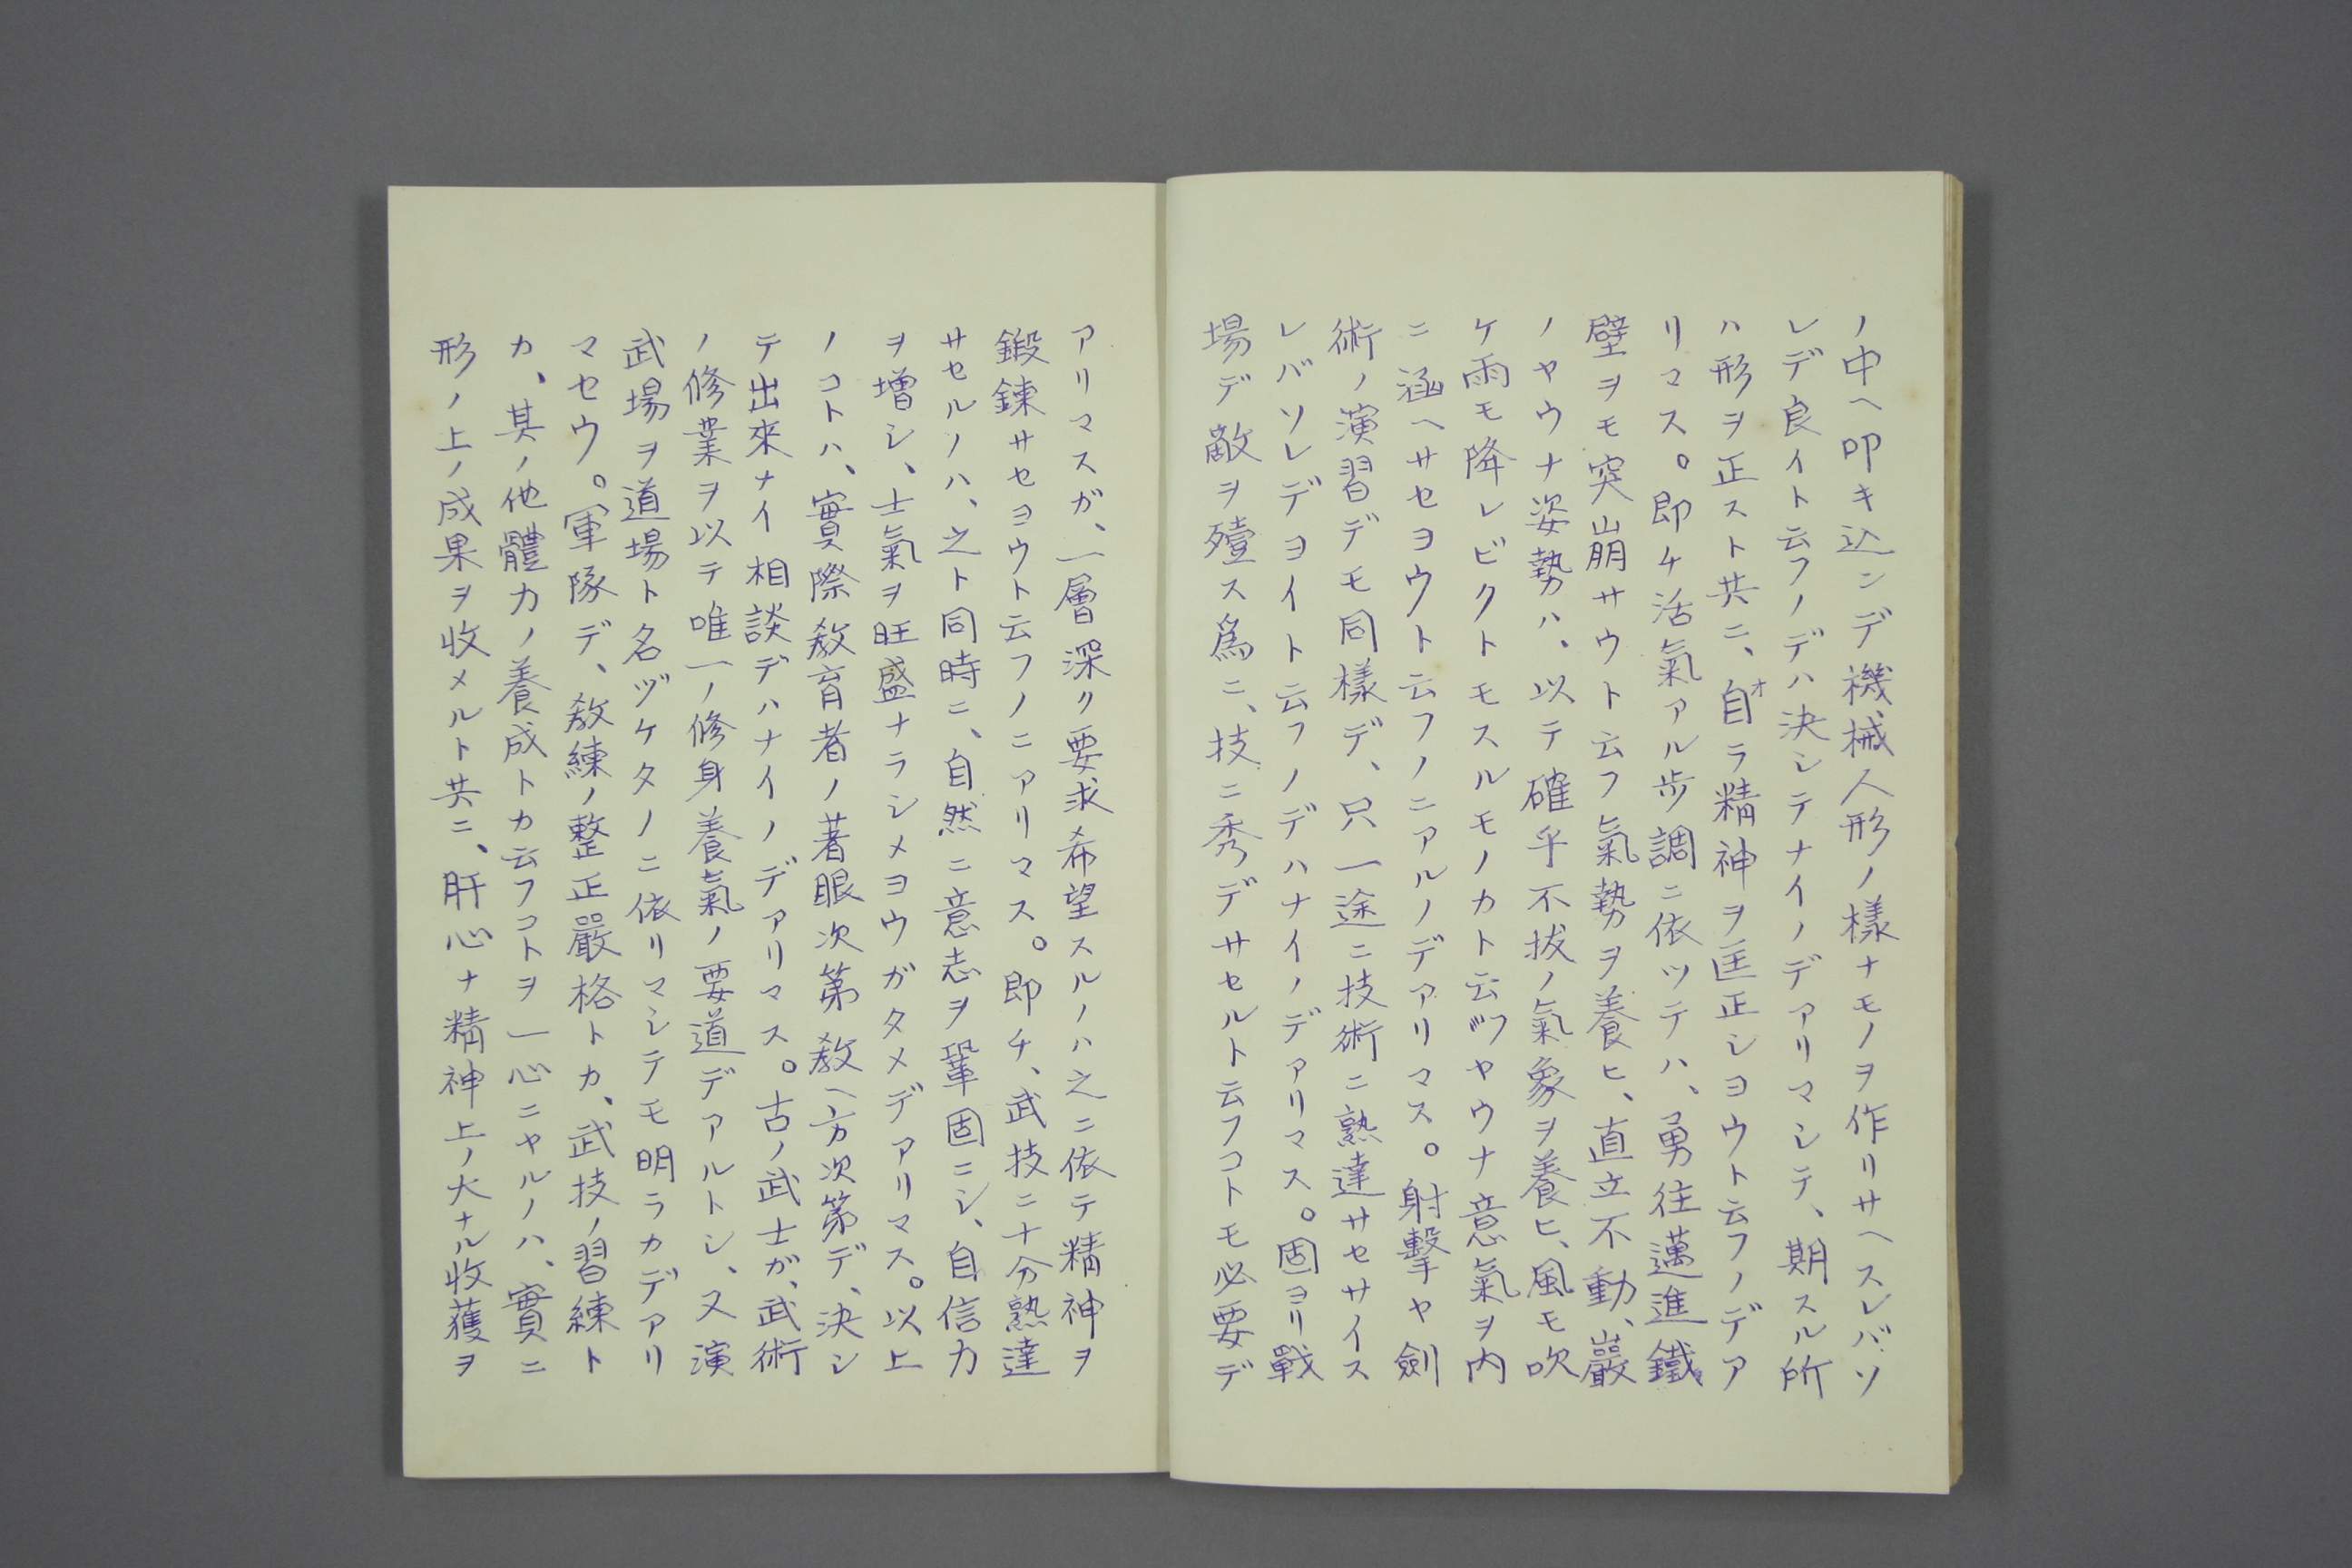 ノ中ヘ叩キ込ンデ機械人形ノ樣ナモノヲ作リサヘスレバソ
レデ良イト云フノデハ決シテナイノデアリマシテ、期スル所
ハ形ヲ正スト共ニ、自オラ精神ヲ匡正シヨウト云フノデア
リマス。即チ活氣アル歩調ニ依ツテハ、勇往邁進鐵
壁ヲモ突崩サウト云フ氣勢ヲ養ヒ、直立不動、巖
ノヤウナ姿勢ハ、以テ確乎不拔ノ氣象ヲ養ヒ、風モ吹
ケ雨モ降レビクトモスルモノカト云フヤウナ意氣ヲ内
ニ涵ヘサセヨウト云フノニアルノデアリマス。射擊ヤ劍
術ノ演習デモ同樣デ、只一途ニ技術ニ熟達サセサイス
レバソレデヨイト云フノデハナイノデアリマス。固ヨリ戰
場デ敵ヲ殪ス爲ニ、技ニ秀デサセルト云フコトモ必要デ
アリマスガ、一層深ク要求希望スルノハ之ニ依テ精神ヲ
鍛鍊サセヨウト云フノニアリマス。即チ、武技ニ十分熟達
サセルノハ、之ト同時ニ、自然ニ意志ヲ鞏固ニシ、自信力
ヲ増シ、士氣ヲ旺盛ナラシメヨウガタメデアリマス。以上
ノコトハ、實際敎育者ノ著眼次第敎ヘ方次第デ、決シ
テ出來ナイ相談デハナイノデアリマス。古ノ武士ガ、武術
ノ修業ヲ以テ唯一ノ修身養氣ノ要道デアルトシ、又演
武場ヲ道場ト名ヅケタノニ依リマシテモ明ラカデアリ
マセウ。軍隊デ、敎練ノ整正嚴格トカ、武技ノ習練ト
カ、其ノ他體力ノ養成トカ云フコトヲ一心ニヤルノハ、實ニ
形ノ上ノ成果ヲ收メルト共ニ、肝心ナ精神上ノ大ナル收獲ヲ